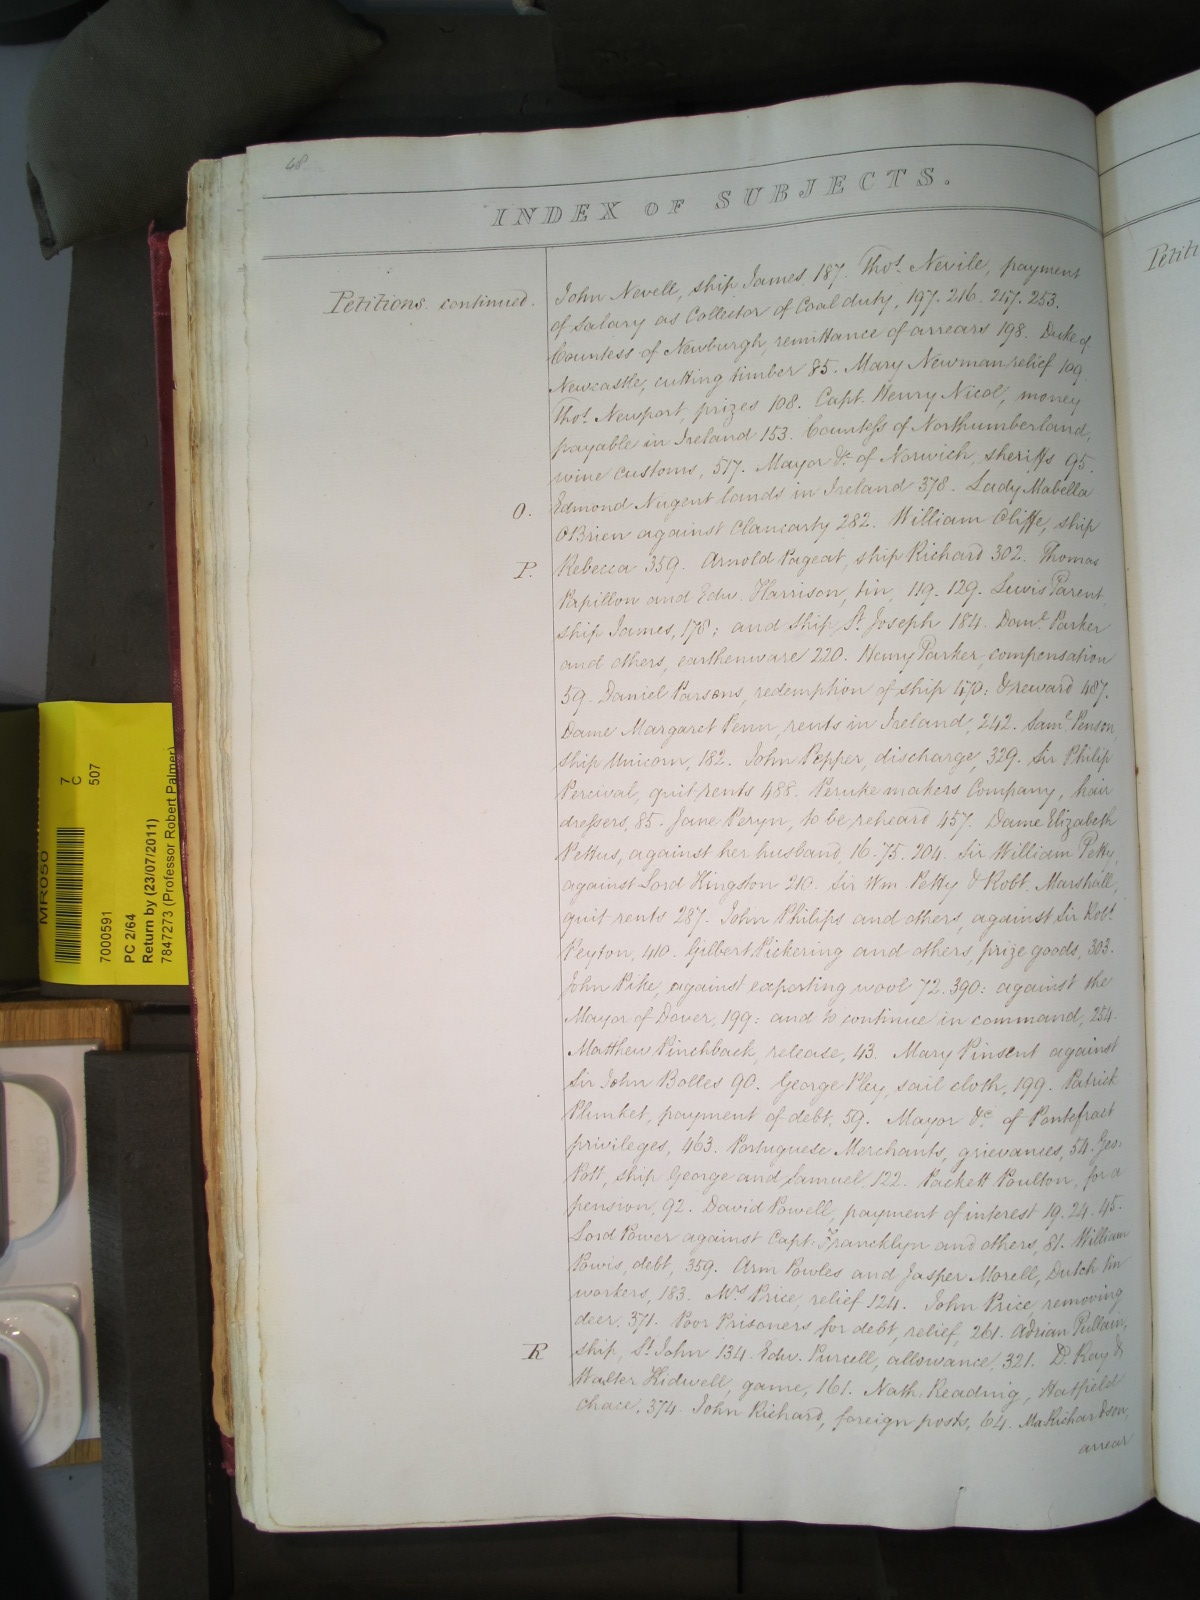 68
INDEX OF SUBJECTS.
Petitions continued.
John Nevell, ship James, 187. Thos. Nevile, payment
of salary as Collector of Coal duty, 197. 216. 247. 253.
Countess of Newburgh, remittance of arrears 198. Duke of
Newcastle, cutting timber 85. Mary Newman relief 199
Thos. Newport, prizes 108. Capt. Henry Nicol, money
payable in Ireland 153. Countess of Northumberland,
wine customs, 517. Mayor &c. of Norwich, sheriffs 95.
Edmond Nugent lands in Ireland 378. Lady Mabella
O.
O'Brien against Clancarty 282. William Cliffe, ship
P.
Rebecca 359. Arnold Pageat, ship Richard 302. Thomas
Papillon and Edw. Harrison, tin, 119. 129. Lewis Parent,
ship James, 178; and ship St. Joseph 184. Danl. Parker
and others, earthenware 220. Henry Parker, compensation
59. Daniel Parsons, redemption of ship 470: & reward 487.
Dame Margaret Penn, rents in Ireland, 242. Saml. Penson,
ship Unicorn, 182. John Pepper, discharge, 329. Sir Philip
Percival, quit rents 488. Peruke makers Company, hair
dressers, 85. Jane Peryn, to be reheard 457. Dame Elizabeth
Pettus, against her husband, 16. 75. 204. Sir William Petty,
against Lord Kingston 210. Sir Wm. Petty & Robt. Marshall,
quit rents 287. John Philips and others, against Sir Robt.
Peyton, 410. Gilbert Pickering and others, prize goods, 303.
John Pike, against exporting wool 72. 390: against the
Mayor of Dover, 199: and to continue in command, 254.
Matthew Pinchback, release, 43. Mary Pinsent against
Sir John Bolles 90. George Pley, sail cloth, 199. Patrick
Plunket, payment of debt, 59. Mayor &c. of Pontefract
privileges, 463. Portuguese Merchants, grievances, 54. Geo.
Pott, ship George and Samuel, 122. Packett Poulton, for a
pension, 92. David Powell, payment of interest 19. 24. 45.
Lord Power against Capt. Francklyn and others, 81. William
Powis, debt, 359. Arm Powles and Jasper Morell, Dutch tin
workers, 183. Mrs. Price, relief 124. John Price, removing
deer, 371. Poor Prisoners for debt, relief, 261. Adrian Pullain,
R
ship, St. John 134. Edw. Purcell, allowance, 321. D. Ray &
Walter Kidwell, game, 161. Nath. Reading, Hatfield
Chace, 374. John Richard, foreign posts, 64. Ma Richardson,
arrear
Petiti
MR050
7
C
507
7000591
PC 2/64
Return by (23/07/2011)
7847273 (Professor Robert Palmer)